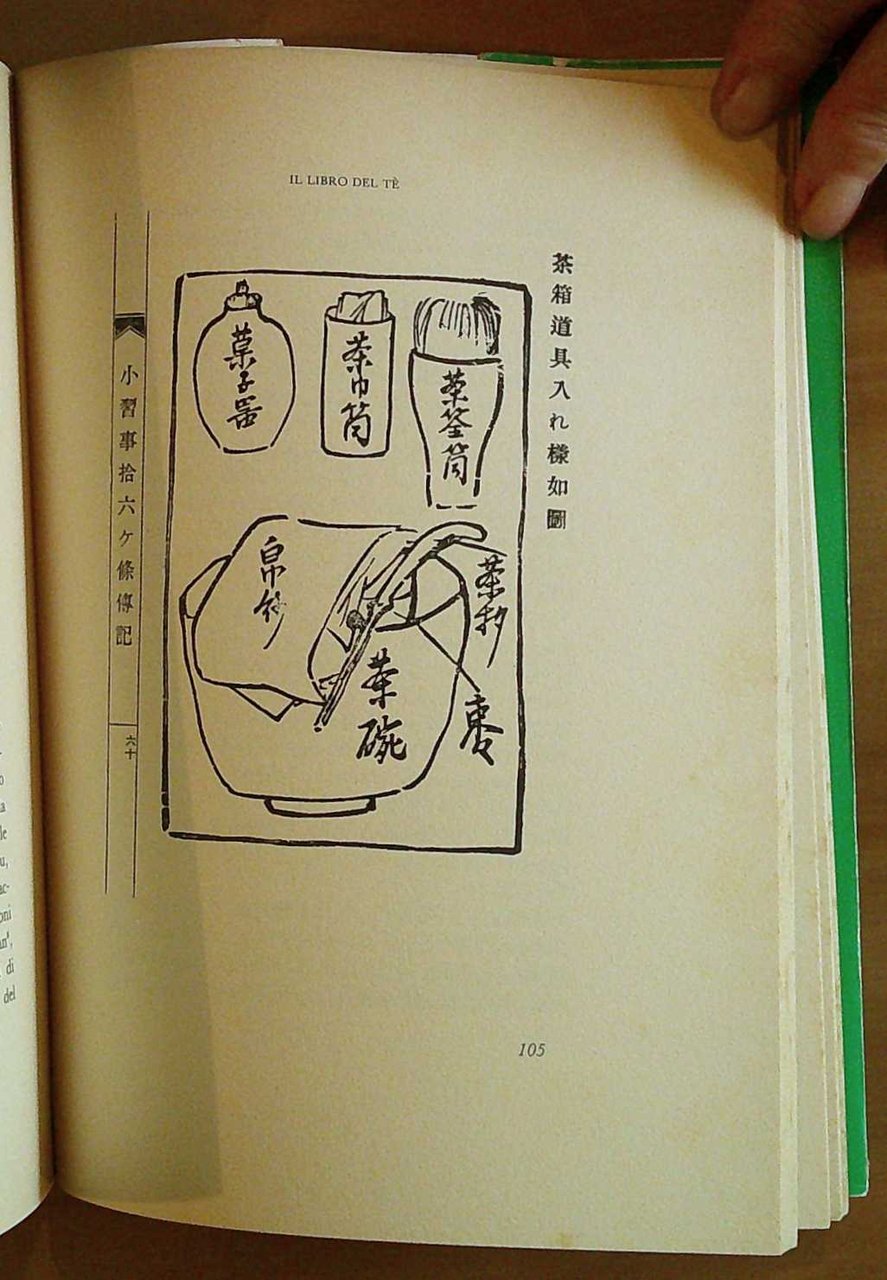 IL LIBRO DEL TÈ
茶箱道具入れ樣如圖
茶筌筒
茶巾筒
菓子器
茶杓
棗
茶碗
帛紗
小習事拾六ケ條傳記
六十
105
u,
ac-
oni
di
del